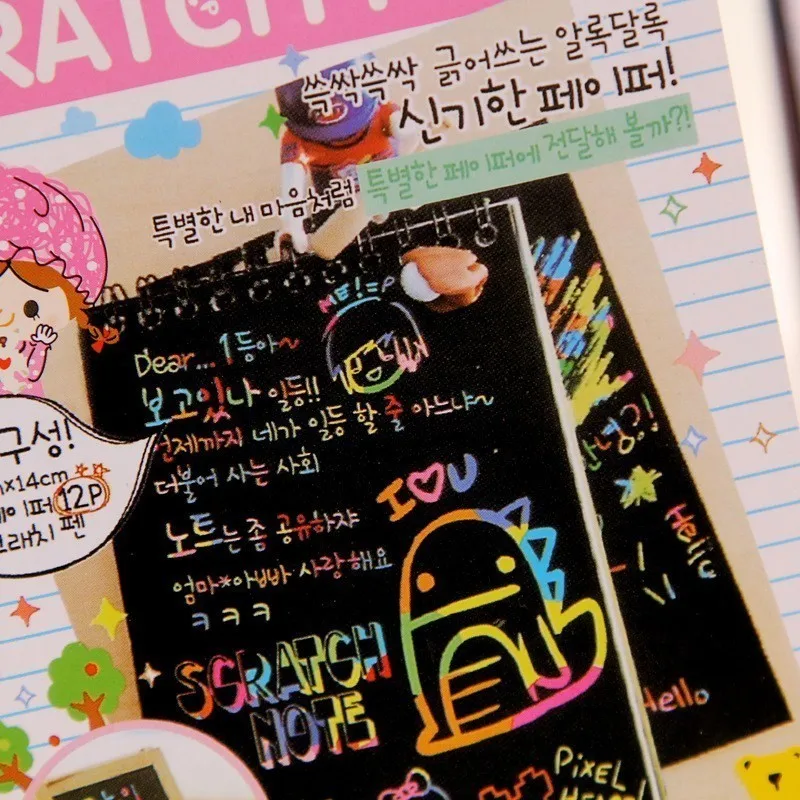 쓱싹쓱싹 긁어쓰는 알록달록
신기한 페이퍼!
특별한 내 마음처럼 특별한 페이퍼에 전달해 볼까?!
ME!=P
Dear... 1등아~
보고있나 일등!!
언제까지 네가 일등 할 줄 아느냐~
더불어 사는 사회
노트는 좀 공유하쟈
엄마*아빠 사랑해요
ㅋㅋㅋ
I♡U
SCRATCH
NOTE
안녕?!
Hello
Hello
PiXEL
구성!
x14cm
12P
펜